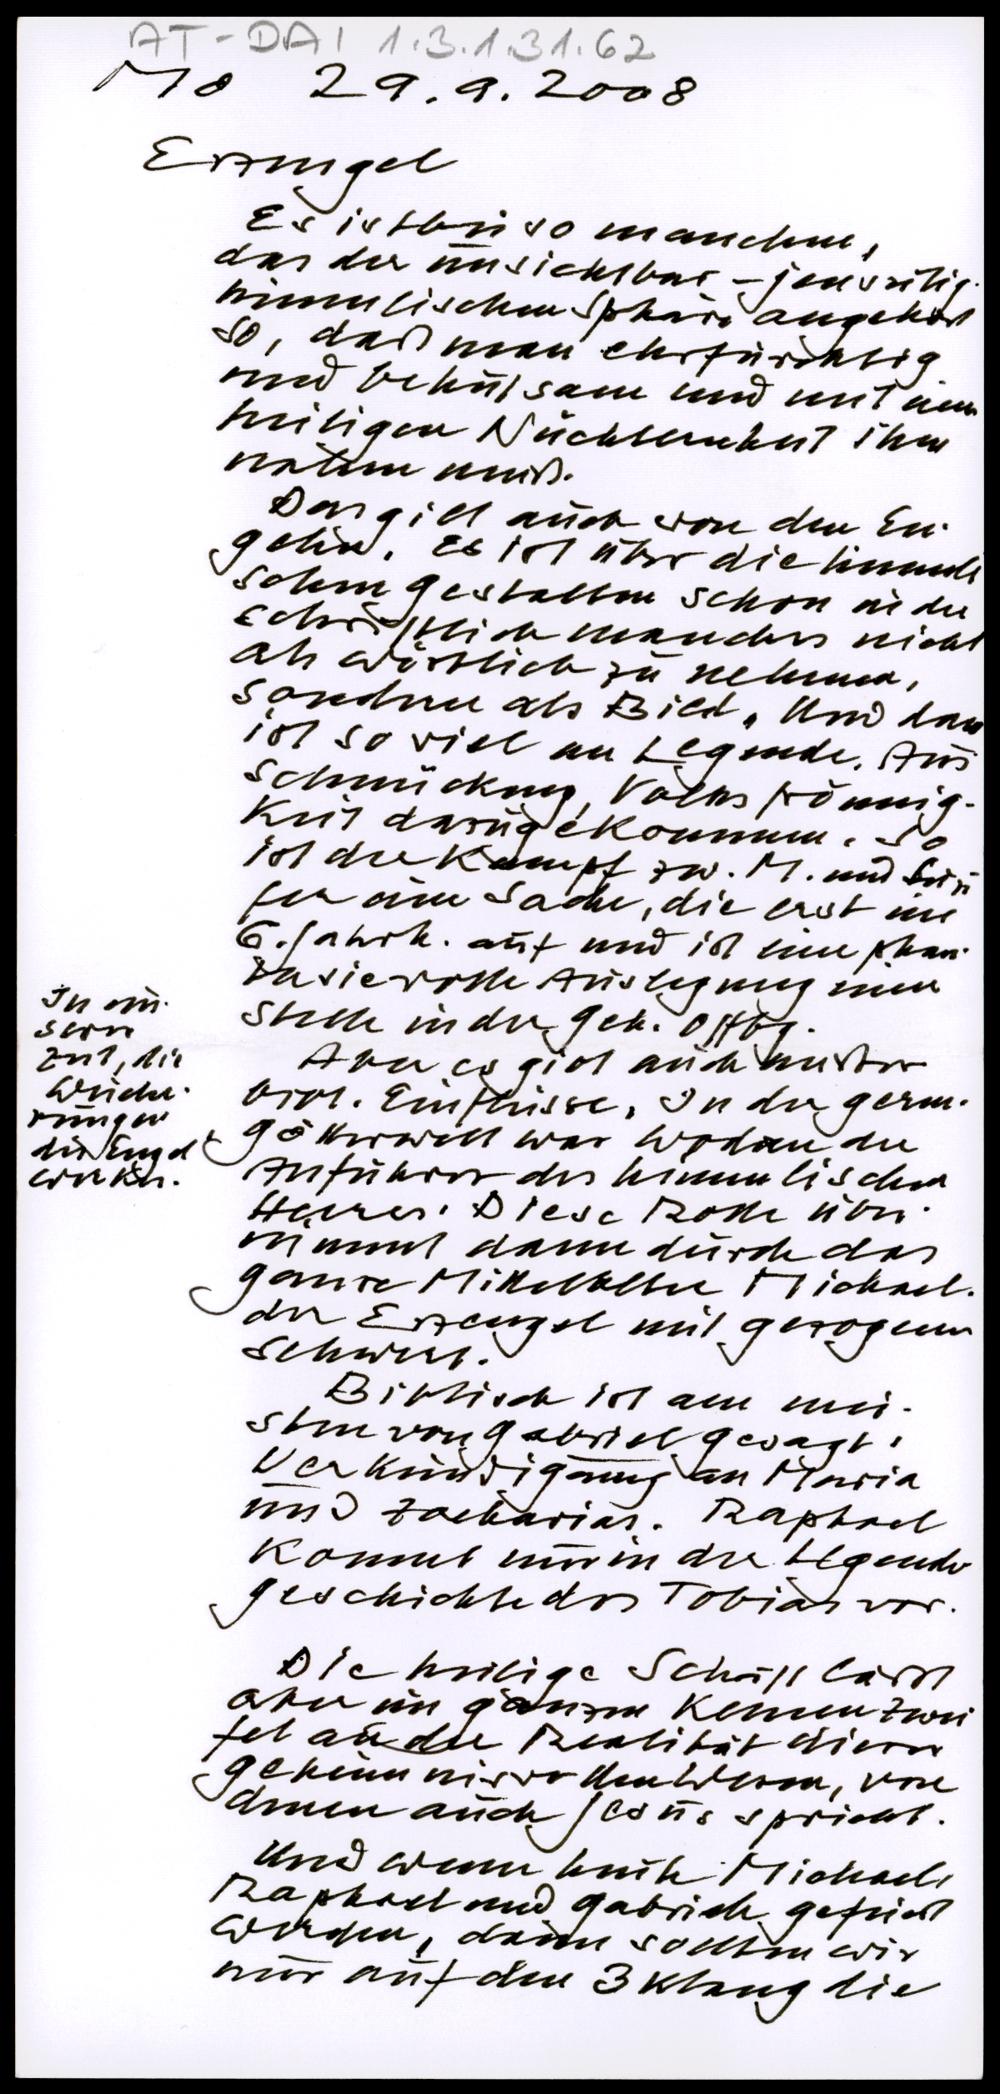 AT-DAI 1.3.1.31.62
Mo 29.9.2008
Erzengel
Es ist bei so manchem,
das der unsichtbar-jenseitig-
himmlischen Sphäre angehört
so, daß man ehrfürchtig
und behutsam und mit einer
heiligen Nüchternheit ihm
nahen muß.
Das gilt auch von den En-
geln. Es ist über die himmli
schen Gestalten schon in der
Schrift manches nicht
als wörtlich zu nehmen,
sondern als Bild. Und dann
ist so viel an Legende, Aus
schmückung, Volksfrömmig-
keit dazugekommen. So
ist der Kampf zw. M. und Luzi
fer eine Sache, die erst im
6. Jahrh. auf und ist eine phan-
tasievolle Auslegung einer
Stelle in der Geh. Offbg.
In un-
serer
Zeit, die
Wuche-
rungen
der Engel
Aber es gibt auch außer
bibl. Einflüsse. In der germ.
Götterwelt war Wodan der
Anführer des himmlischen
Heeres. Diese Rolle über-
nimmt dann durch das
ganze Mittelalter Michael.
der Erzengel mit gezogenem
Schwert.
Biblisch ist am mei-
sten von Gabriel gesagt.
Verkündigung an Maria
und Zacharias. Raphael
kommt nur in der Legende
geschichte des Tobias vor.
Die heilige Schrift läßt
aber im ganzen keinen Zwei
fel an der Realität dieser
geheimnisvollen Wesen, von
denen auch Jesus spricht.
Und wenn heute Michael,
Raphael und Gabriel gefeiert
werden, dann sollten wir
nur auf den 3klang die